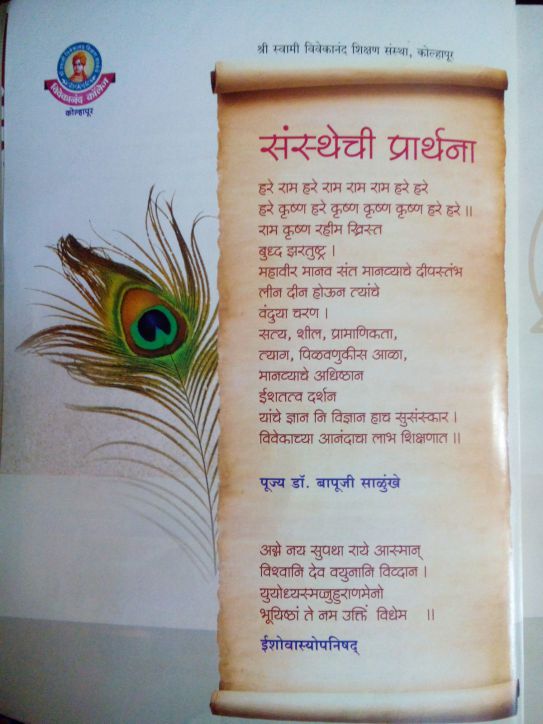 श्री स्वामी विवेकानंद शिक्षण संस्था, कोल्हापूर
विवेकानंद कॉलेज
कोल्हापूर
संस्थेची प्रार्थना
हरे राम हरे राम राम राम हरे हरे
हरे कृष्ण हरे कृष्ण कृष्ण कृष्ण हरे हरे ॥
राम कृष्ण रहीम ख्रिस्त
बुध्द झरतुष्ट्र ।
महावीर मानव संत मानव्याचे दीपस्तंभ
लीन दीन होऊन त्यांचे
वंदुया चरण ।
सत्य, शील, प्रामाणिकता,
त्याग, पिळवणुकीस आळा,
मानव्याचे अधिष्ठान
ईशतत्व दर्शन
यांचे ज्ञान नि विज्ञान हाच सुसंस्कार ।
विवेकाच्या आनंदाचा लाभ शिक्षणात ॥
पूज्य डॉ. बापूजी साळुंखे
अग्ने नय सुपथा राये आस्मान्
विश्वानि देव वयुनानि विव्दान ।
युयोध्यस्मज्जुहुराणमेनो
भूयिष्ठां ते नम उक्तिं विधेम ॥
ईशोवास्योपनिषद्